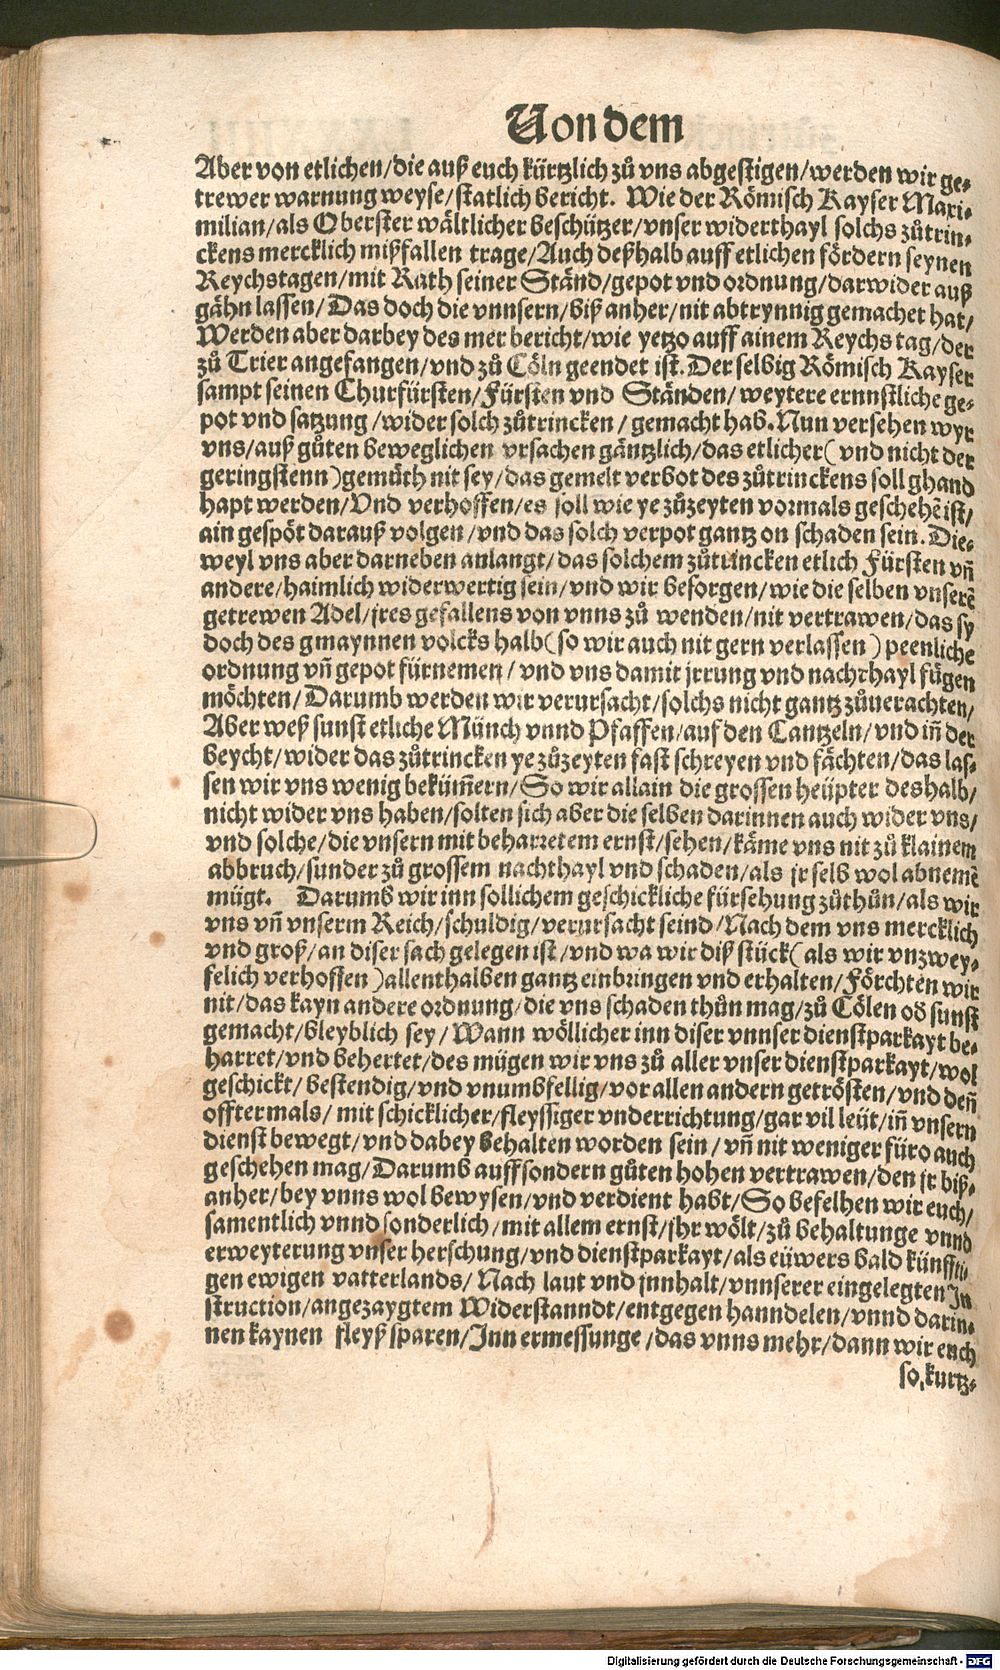 Von dem
Aber von etlichen/die auß euch kürtzlich zů vns abgestigen/werden wir ge⸗
trewer warnung weyse/statlich bericht. Wie der Römisch Kayser Maxi⸗
milian/als Oberster wältlicher beschützer/vnser widerthayl solchs zůtrin⸗
ckens mercklich mißfallen trage/Auch deßhalb auff etlichen fördern seynen
Reychstagen/mit Rath seiner Ständ/gepot vnd ordnung/darwider auß
gähn lassen/Das doch die vnnsern/biß anher/nit abtrynnig gemachet hat/
Werden aber darbey des mer bericht/wie yetzo auff ainem Reychs tag/der
zů Trier angefangen/vnd zů Cöln geendet ist. Der selbig Römisch Kayser
sampt seinen Churfürsten/Fürsten vnd Ständen/weytere ernnstliche ge⸗
pot vnd satzung/wider solch zůtrincken/gemacht hab. Nun versehen wyr
vns/auß gůten beweglichen vrsachen gäntzlich/das etlicher(vnd nicht der
geringstenn)gemüth nit sey/das gemelt verbot des zůtrinckens soll ghand
hapt werden/Vnd verhoffen/es soll wie ye zůzeyten vormals geschehē ist/
ain gespöt darauß volgen/vnd das solch verpot gantz on schaden sein. Die⸗
weyl vns aber darneben anlangt/das solchem zůtrincken etlich Fürsten vñ
andere/haimlich widerwertig sein/vnd wir besorgen/wie die selben vnserē
getrewen Adel/jres gefallens von vnns zů wenden/nit vertrawen/das sy
doch des gmaynnen volcks halb(so wir auch nit gern verlassen)peenliche
ordnung vñ gepot fürnemen/vnd vns damit jrrung vnd nachthayl fügen
möchten/Darumb werden wir verursacht/solchs nicht gantz zůuerachten/
Aber weß sunst etliche Münch vnnd Pfaffen/auf den Cantzeln/vnd iñ der
beycht/wider das zůtrincken ye zůzeyten fast schreyen vnd fächten/das las⸗
sen wir vns wenig bekům̃ern/So wir allain die grossen heüpter deshalb/
nicht wider vns haben/solten sich aber die selben darinnen auch wider vns/
vnd solche/die vnsern mit beharretem ernst/sehen/käme vns nit zů klainem
abbruch/sunder zů grossem nachthayl vnd schaden/als jr selb wol abnemē
mügt. Darumb wir inn sollichem geschickliche fürsehung zůthůn/als wir
vns vñ vnserm Reich/schuldig/verursacht seind/Nach dem vns mercklich
vnd groß/an diser sach gelegen ist/vnd wa wir diß stück(als wir vnzwey⸗
felich verhoffen)allenthalben gantz einbringen vnd erhalten/Förchten wir
nit/das kayn andere ordnung/die vns schaden thůn mag/zů Cölen od̕ sunst
gemacht/bleyblich sey/Wann wöllicher inn diser vnnser dienstparkayt be⸗
harret/vnd behertet/des mügen wir vns zů aller vnser dienstparkayt/wol
geschickt/bestendig/vnd vnumbfellig/vor allen andern getrösten/vnd deñ
offtermals/mit schicklicher/fleyssiger vnderrichtung/gar vil leüt/iñ vnsern
dienst bewegt/vnd dabey behalten worden sein/vñ nit weniger füro auch
geschehen mag/Darumb auffsondern gůten hohen vertrawen/den jr biß⸗
anher/bey vnns wol bewysen/vnd verdient habt/So befelhen wir euch/
samentlich vnnd sonderlich/mit allem ernst/jhr wölt/zů behaltunge vnnd
erweyterung vnser herschung/vnd dienstparkayt/als eüwers bald künffti⸗
gen ewigen vatterlands/Nach laut vnd jnnhalt/vnnserer eingelegten In
struction/angezaygtem Widerstanndt/entgegen hanndelen/vnnd darin⸗
nen kaynen fleyß sparen/Inn ermessunge/das vnns mehr/dann wir euch
so kurtz⸗
Digitalisierung gefördert durch die Deutsche Forschungsgemeinschaft - DFG